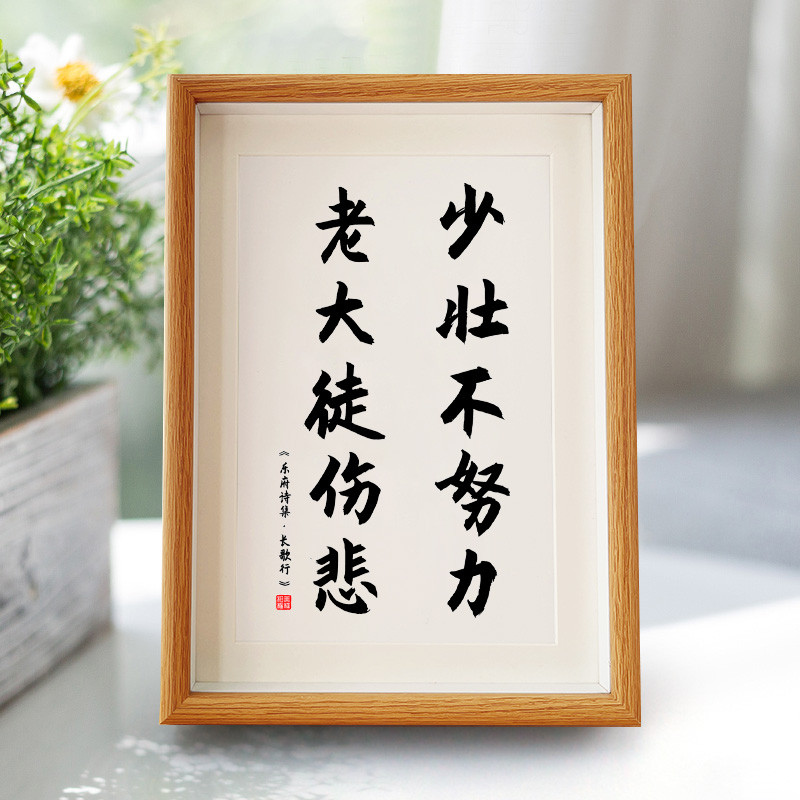 少壮不努力
老大徒伤悲
《乐府诗集·长歌行》